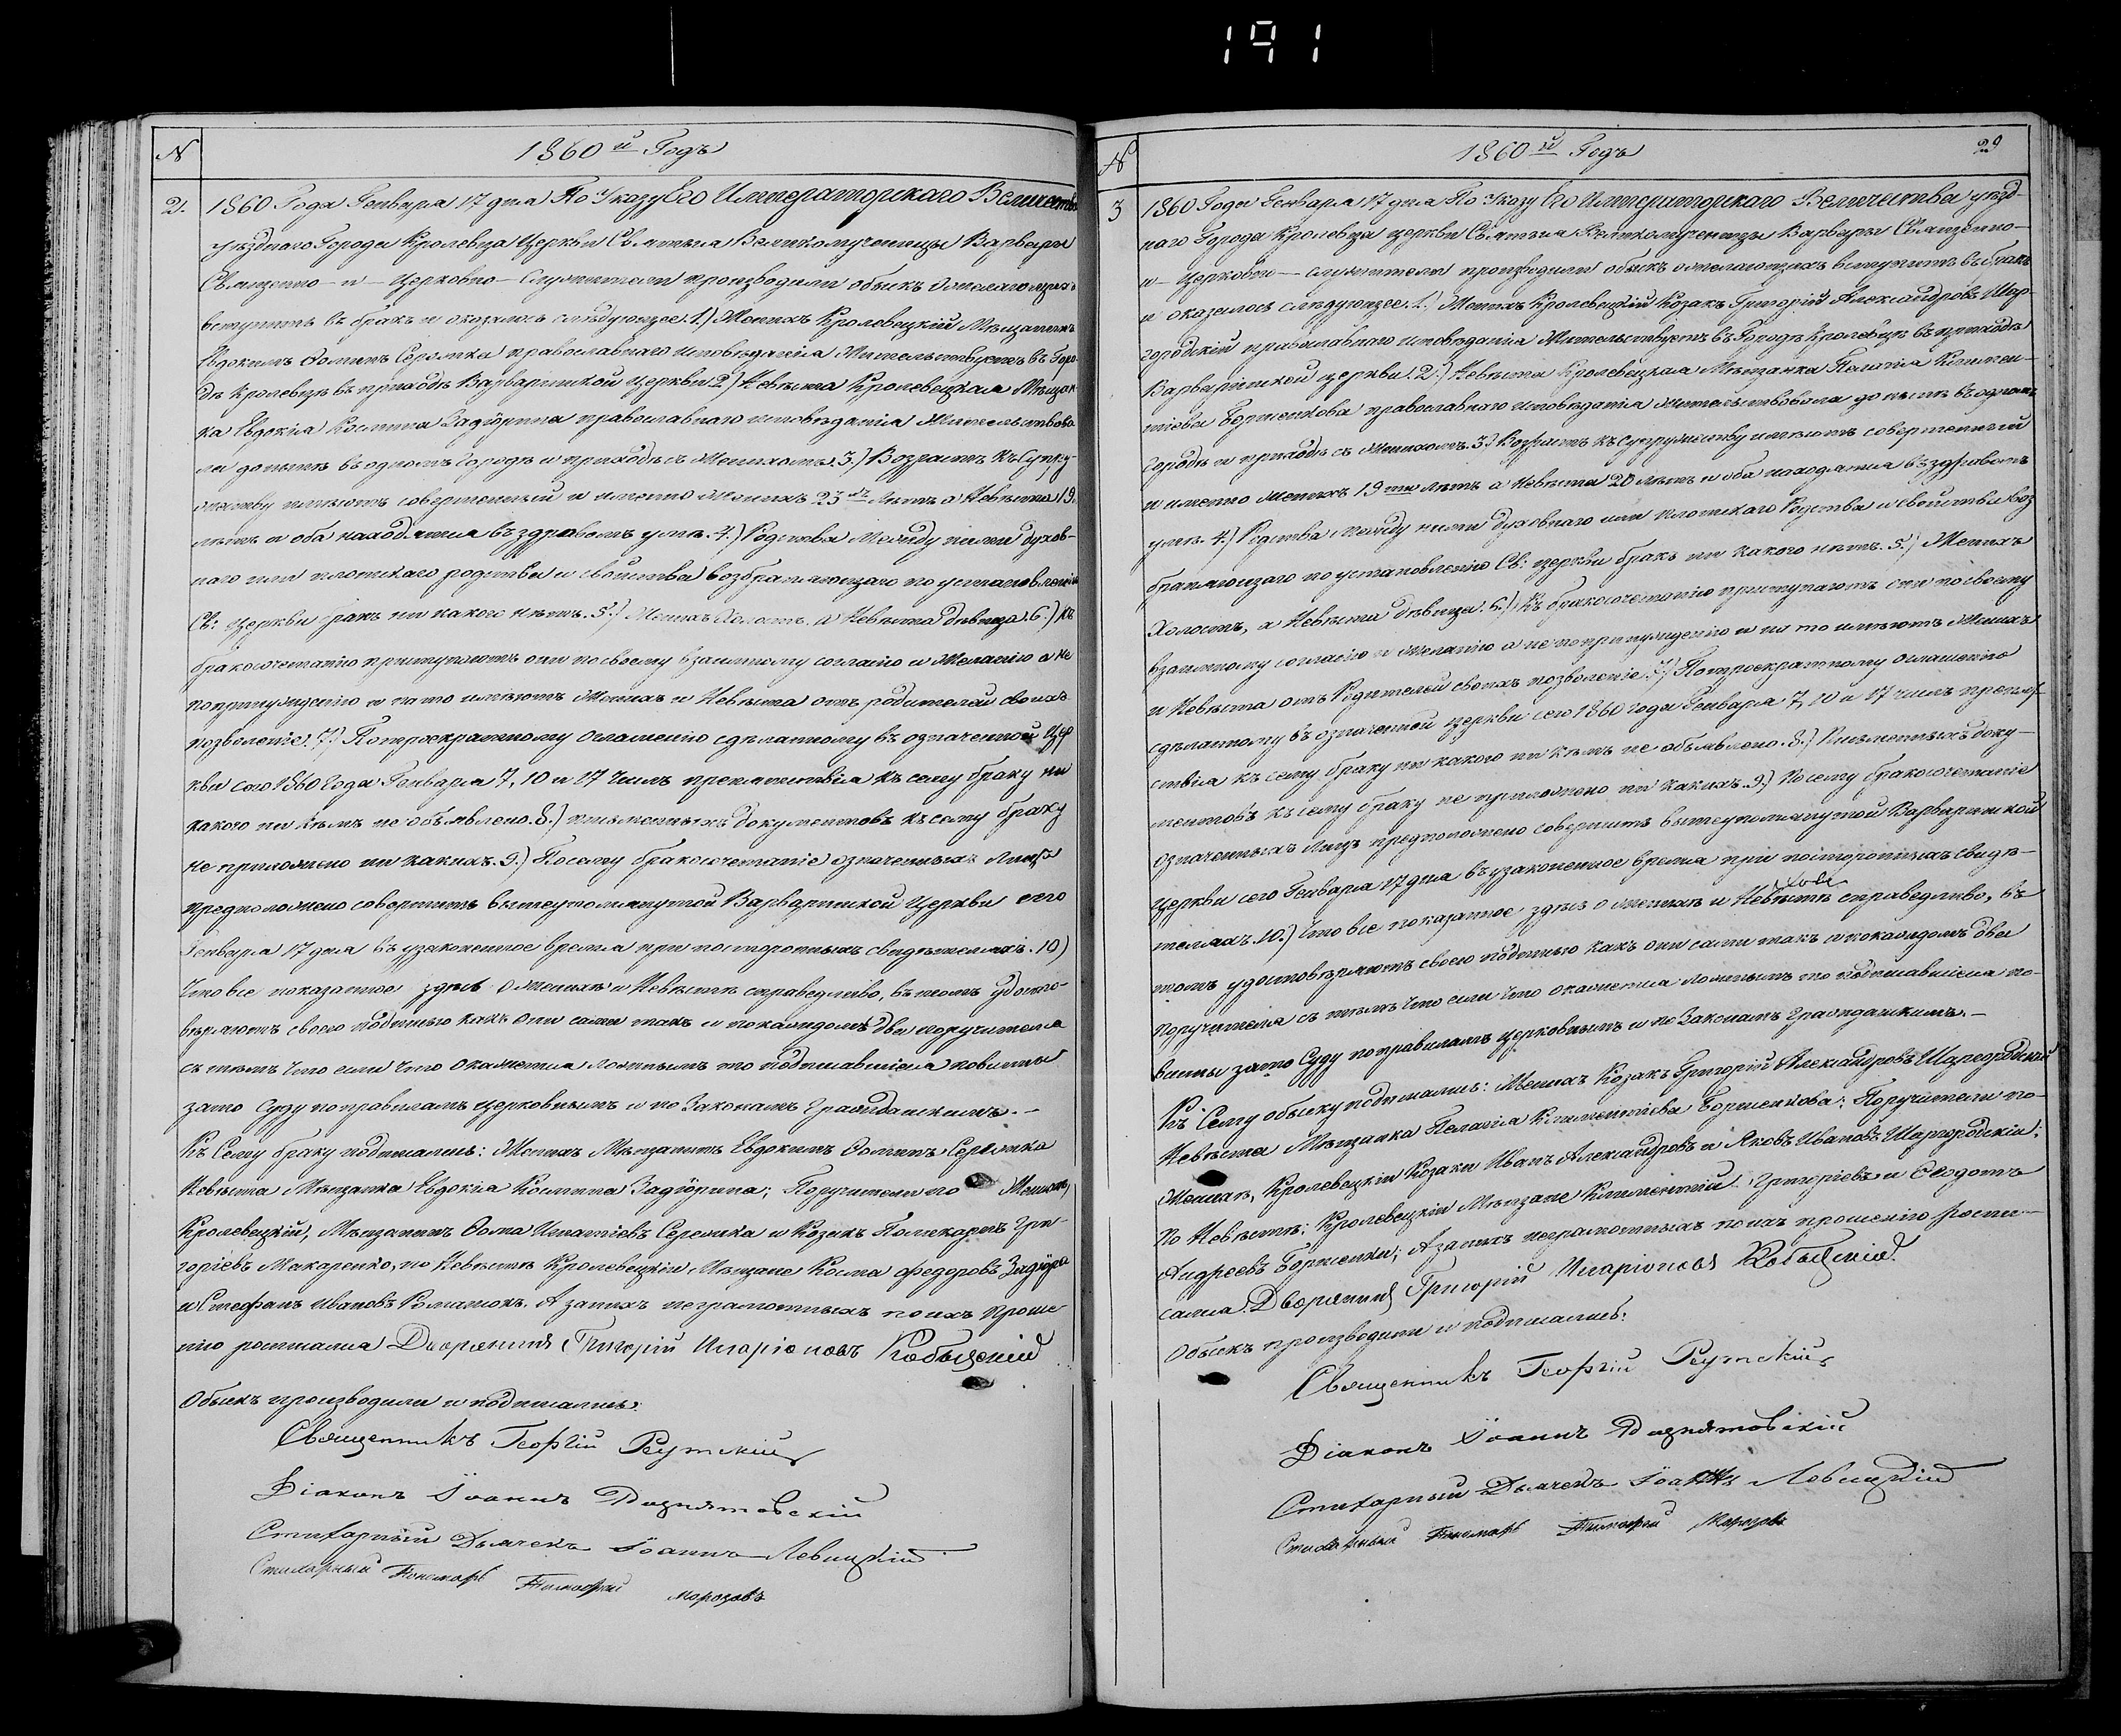 191
N
1860й Годъ
2. 1860 Года Генваря 17 дня По Указу Его Императорскаго Величества
уѣзднаго Города Кролевца Церкви Святыя Великомученицы Варвары
Священно- и- Церковно- Служители производили обыскъ о желающихъ
вступить въ бракъ и оказалось слѣдующее. 1.) Женихъ Кролевецкій Мѣщанинъ
Евдокимъ Ѳоминъ Сережка православнаго исповѣданія Жительствуетъ въ Горо-
дѣ Кролевцѣ въ приходѣ Варваринской церкви. 2.) Невѣста Кролевецкая Мѣщан-
ка Евдокія Космина Задіорина православнаго исповѣданія Жительствова-
ла донынѣ въ одномъ Городѣ и приходѣ съ Женихомъ. 3.) Возрастъ къ Супру-
жеству имѣютъ совершенный и именно Женихъ 23 лѣтъ а Невѣста 19.
лѣтъ и оба находятся въ здравомъ умѣ. 4.) Родства Между ними духов-
наго или плотскаго родства и свойства возбраняющаго по установленію
Св: Церкви бракъ ни какого нѣтъ. 5.) Женихъ Холостъ, а Невѣста дѣвица. 6.) Къ
бракосочетанію приступаютъ они по своему взаимному согласію и Желанію а не
по принужденію и на то имѣютъ Женихъ и Невѣста отъ родителей своихъ
позволеніе. 7.) По троекратному Оглашенію сдѣланному въ означенной Цер
кви сего 1860 Года Генваря 7, 10 и 17 Числъ препятствія къ сему браку ни
какого ни кѣмъ не объявлено. 8.) письменныхъ документовъ къ сему браку
не приложено ни какихъ. 9.) По сему бракосочетаніе означенныхъ Лицъ
предположено совершить вышеупомянутой Варваринской Церкви сего
Генваря 17 дня въ узаконенное время при постороннихъ свидѣтеляхъ. 10)
Что все показанное здѣсь о женихѣ и Невѣстѣ справедливо, въ томъ удосто-
вѣряютъ своею подписью какъ они сами такъ и по каждомъ два поручителя
съ тѣмъ что если что окажется ложнымъ то подписавшіеся повинны
зато Суду по правиламъ церковнымъ и по Законамъ Гражданскимъ.-
Къ Сему браку подписались: Женихъ Мѣщанинъ Евдокимъ Ѳоминъ Сережка
Невѣста Мѣщанка Евдокія Космина Задіорина; Поручители по Женихѣ,
Кролевецкій, Мѣщанинъ Ѳома Игнатіевъ Сережка и Козакъ Поликарпъ Гри-
горіевъ Макаренко, по Невѣстѣ Кролевецкіи Мѣщане Косма Федоровъ Задіора
и Стефанъ Ивановъ Романюкъ. А за нихъ неграмотныхъ по ихъ проше-
нію росписался Дворянинъ Григорій Иларіоновъ Кобызскій
Обыскъ производили и подписались:
Священникъ Георгій Реутскій
Діаконъ Іоаннъ Рознатовскій
Стихарный Дьячекъ Іоаннъ Левицкій
Стихарный Пономарь Тимофей Морозовъ
N
1860й Годъ
29
3 1860 Года Генваря 17 дня По Указу Его Императорскаго Величества уѣзд-
наго Города Кролевца церкви Святыя Великомученицы Варвары Священно-
и- Церковно- служители производили обыскъ о желающихъ вступить въ бракъ
и оказалось слѣдующее. 1.) Женихъ Кролевецкій Козакъ Григорій Александровъ Шар-
городскій православнаго исповѣданія Жительствуетъ въ Городѣ Кролевцѣ въ приходѣ
Варваринской церкви. 2.) Невѣста Кролевецкая Мѣщанка Пелагія Климен-
тіева Борженкова православнаго исповѣданія Жительствовала до нынѣ въ одномъ
Городѣ и приходѣ съ Женихомъ. 3.) Возрастъ къ Супружеству имѣютъ совершенный
и именно Женихъ 19ти лѣтъ а Невѣста 20 лѣтъ и оба находятся въ здравомъ
умѣ. 4.) Родства Между ними духовнаго или плотскаго Родства и свойства воз
браняющаго по установленію Св: церкви бракъ ни какого нѣтъ. 5.) Женихъ
Холостъ, а Невѣста дѣвица. 6.) Къ бракосочетанію приступаютъ они по своему
взаимному согласію и Желанію а не по принужденію и на то имѣютъ Женихъ
и Невѣста отъ Родителей своихъ позволеніе. 7.) По троекратному Оглашенію
сдѣланному въ означенной церкви сего 1860 Года Генваря 7, 10 и 17 числъ препят-
ствія къ сему браку ни какого ни кѣмъ не объявлено. 8.) Письменныхъ доку-
ментовъ къ сему браку не приложено ни какихъ. 9.) По сему бракосочетаніе
означенныхъ Лицъ предположено совершить вышеупомянутой Варваринской
церкви сего Генваря 17 дня въ узаконенное время при постороннихъ свидѣ-
теляхъ. 10.) Что все показанное здѣсь о женихѣ и Невѣстѣ справедливо, въ
томъ удостовѣряютъ своею подписью какъ они сами такъ и по каждомъ два
поручителя съ тѣмъ что если что окажется ложнымъ то подписавшіеся по-
винны зато Суду по правиламъ церковнымъ и по Законамъ Гражданскимъ.-
Къ Сему обыску подписались: Женихъ Козакъ Григорій Александровъ Шаргородскій
Невѣста Мѣщанка Пелагія Климентіева Борженкова; Поручители по-
Женихѣ, Кролевецкіи Козаки Иванъ Александровъ и Яковъ Ивановъ Шаргородскіи;
По Невѣстѣ: Кролевецкіи Мѣщане Климентій Григоріевъ и Ѳедотъ
Андреевъ Борженки; А за нихъ неграмотныхъ по ихъ прошенію роспи-
сался Дворянинъ Григорій Иларіоновъ Кобызскій.
Обыскъ производили и подписались:
Священникъ Георгій Реутскій
Діаконъ Іоаннъ Рознатовскій
Стихарный Дьячекъ Іоаннъ Левицкій
Стихарный Пономарь Тимофей Морозовъ